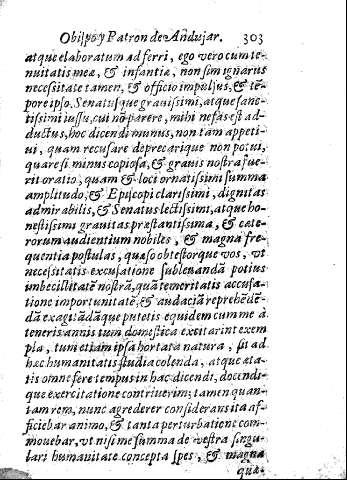 Obiſpo y Patron de Andujar. 303
atque elaboratum adferri, ego vero cum te-
nuitatis meæ, & infantiæ, non ſim ignarus
neceſsitate tamen, & officio impulſus, & tē-
pore ipſo. Senatuſque grauiſsimi, atque ſanc-
tiſsimi iuſſu, cui nō parere, mihi nefas eſt ad-
ductus, hoc dicendi munus, non tam appeti-
ui, quam recuſare deprecarique non potui,
quare ſi minus copioſa, & grauis noſtra fue-
rit oratio, quam & loci ornatiſsimi ſumma
amplitudo, & Epiſcopi clariſsimi, dignitas
admirabilis, & Senatus lectiſsimi, atque ho-
neſtiſsimi grauitas præſtantiſsima, & cæte-
rorum audientium nobiles, & magna fre-
quentia poſtulas, quæſo obteſtorque vos, vt
neceſsitatis excuſatione ſubleuandā potius
imbecillitatē noſtrā, quā temeritatis accuſa-
tione importunitatē, & audaciā reprehēdē-
dā exagitādāque putetis equidem cum me à
teneris annis tum domeſtica excitarint exem
pla, tum etiam ipſa hortata natura, ſit ad
hæc humanitatis ſtudia colenda, atque æta-
tis omne fere tempus in hac dicendi, docendi-
que exercitatione contriuerim; tamen quan-
tam rem, nunc agrederer conſiderans ita af-
ficiebar animo, & tanta perturbatione com-
mouebar, vt niſi me ſumma de veſtra ſingu-
lari humanitate concepta ſpes, & magna
qua-